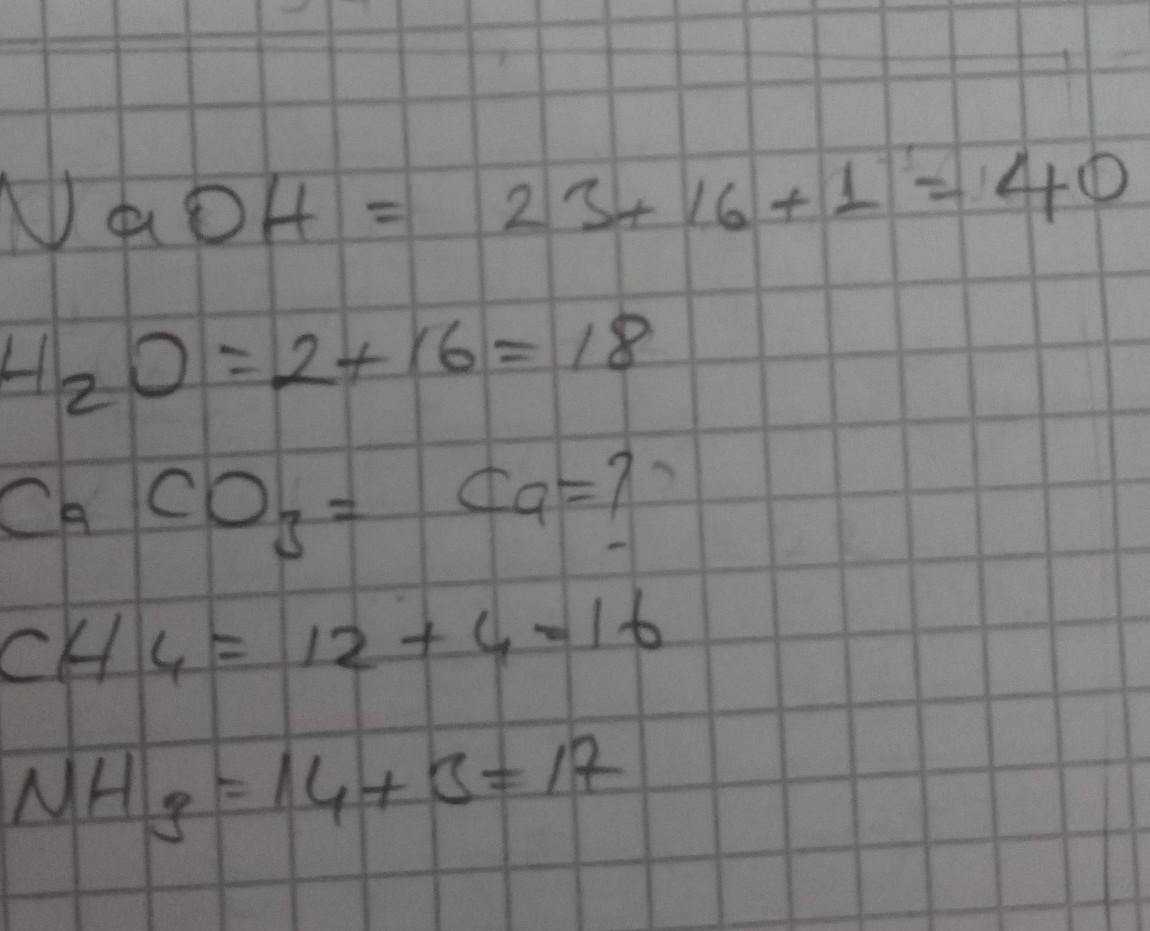 NaOH = 23+16+1=40
H₂O=2+16=18
CaCO₃= Ca=?
CH4=12+4=16
NH₃=14+3=17